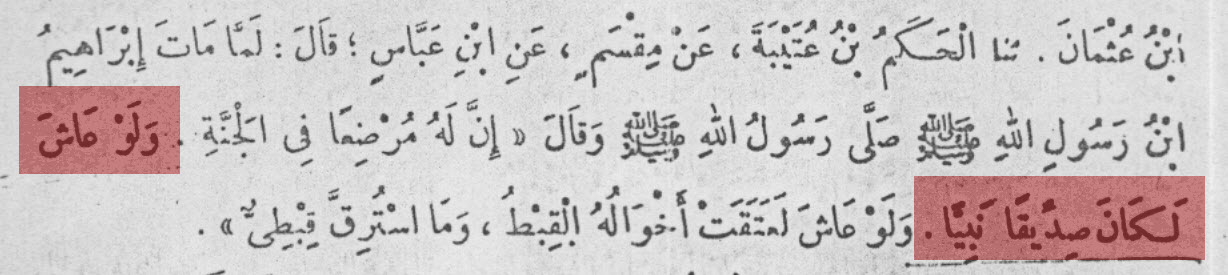 ابْنُ عُثْمَانَ . ثنا الْحَكَمُ بْنُ عُتَيْبَةَ ، عَنْ مِقْسَمٍ ، عَنِ ابْنِ عَبَّاسٍ ؛ قَالَ : لَمَّا مَاتَ إِبْرَاهِيمُ
ابْنُ رَسُولِ اللهِ ﷺ صَلَّى رَسُولُ اللهِ ﷺ وَقَالَ « إِنَّ لَهُ مُرْضِعًا فِى الْجَنَّةِ . وَلَوْ عَاشَ
لَكَانَ صِدِّيقًا نَبِيًّا . وَلَوْ عَاشَ لَعَتَقَتْ أَخْوَالُهُ الْقِبْطُ ، وَمَا اسْتُرِقَّ قِبْطِىٌّ » .